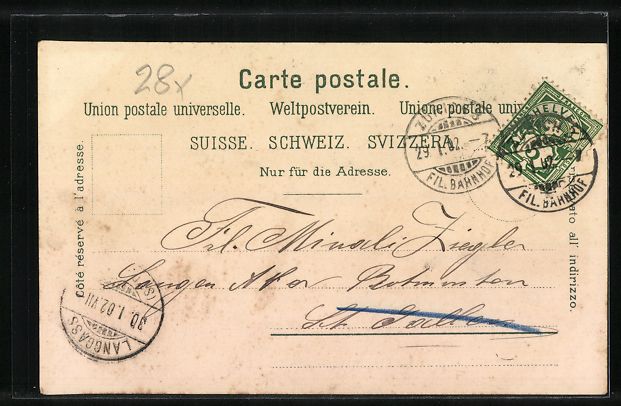 28x
Carte postale.
Union postale universelle. Weltpostverein. Unione postale univ
SUISSE. SCHWEIZ. SVIZZERA.
Nur für die Adresse.
Côté réservé à l'adresse.
all' indirizzo.
ZÜRICH
29. I. 02. – 7
FIL. BAHNHOF
HELVETIA
FIL. BAHNHOF
Frl. Minali Ziegler
Langen Aker Rotmonten
St. Gallen
30. I. 02. VII
LANGGASS